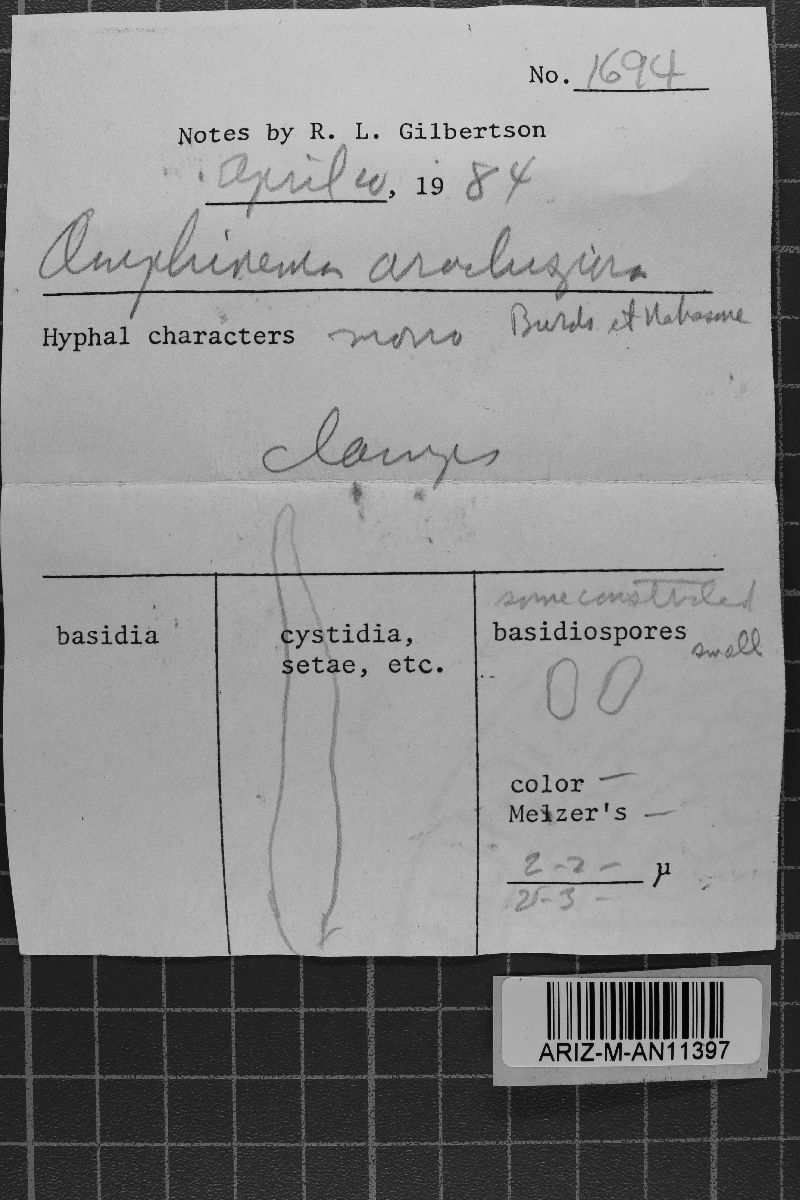 No. 1694
Notes by R. L. Gilbertson
April 10, 19 84
Amphinema arachispora
Burds. et Nakasone
Hyphal characters mono
clamps
some constricted
basidia
cystidia,
setae, etc.
basidiospores
small
color —
Melzer's —
2 - 2 - µ
25-3 -
ARIZ-M-AN11397